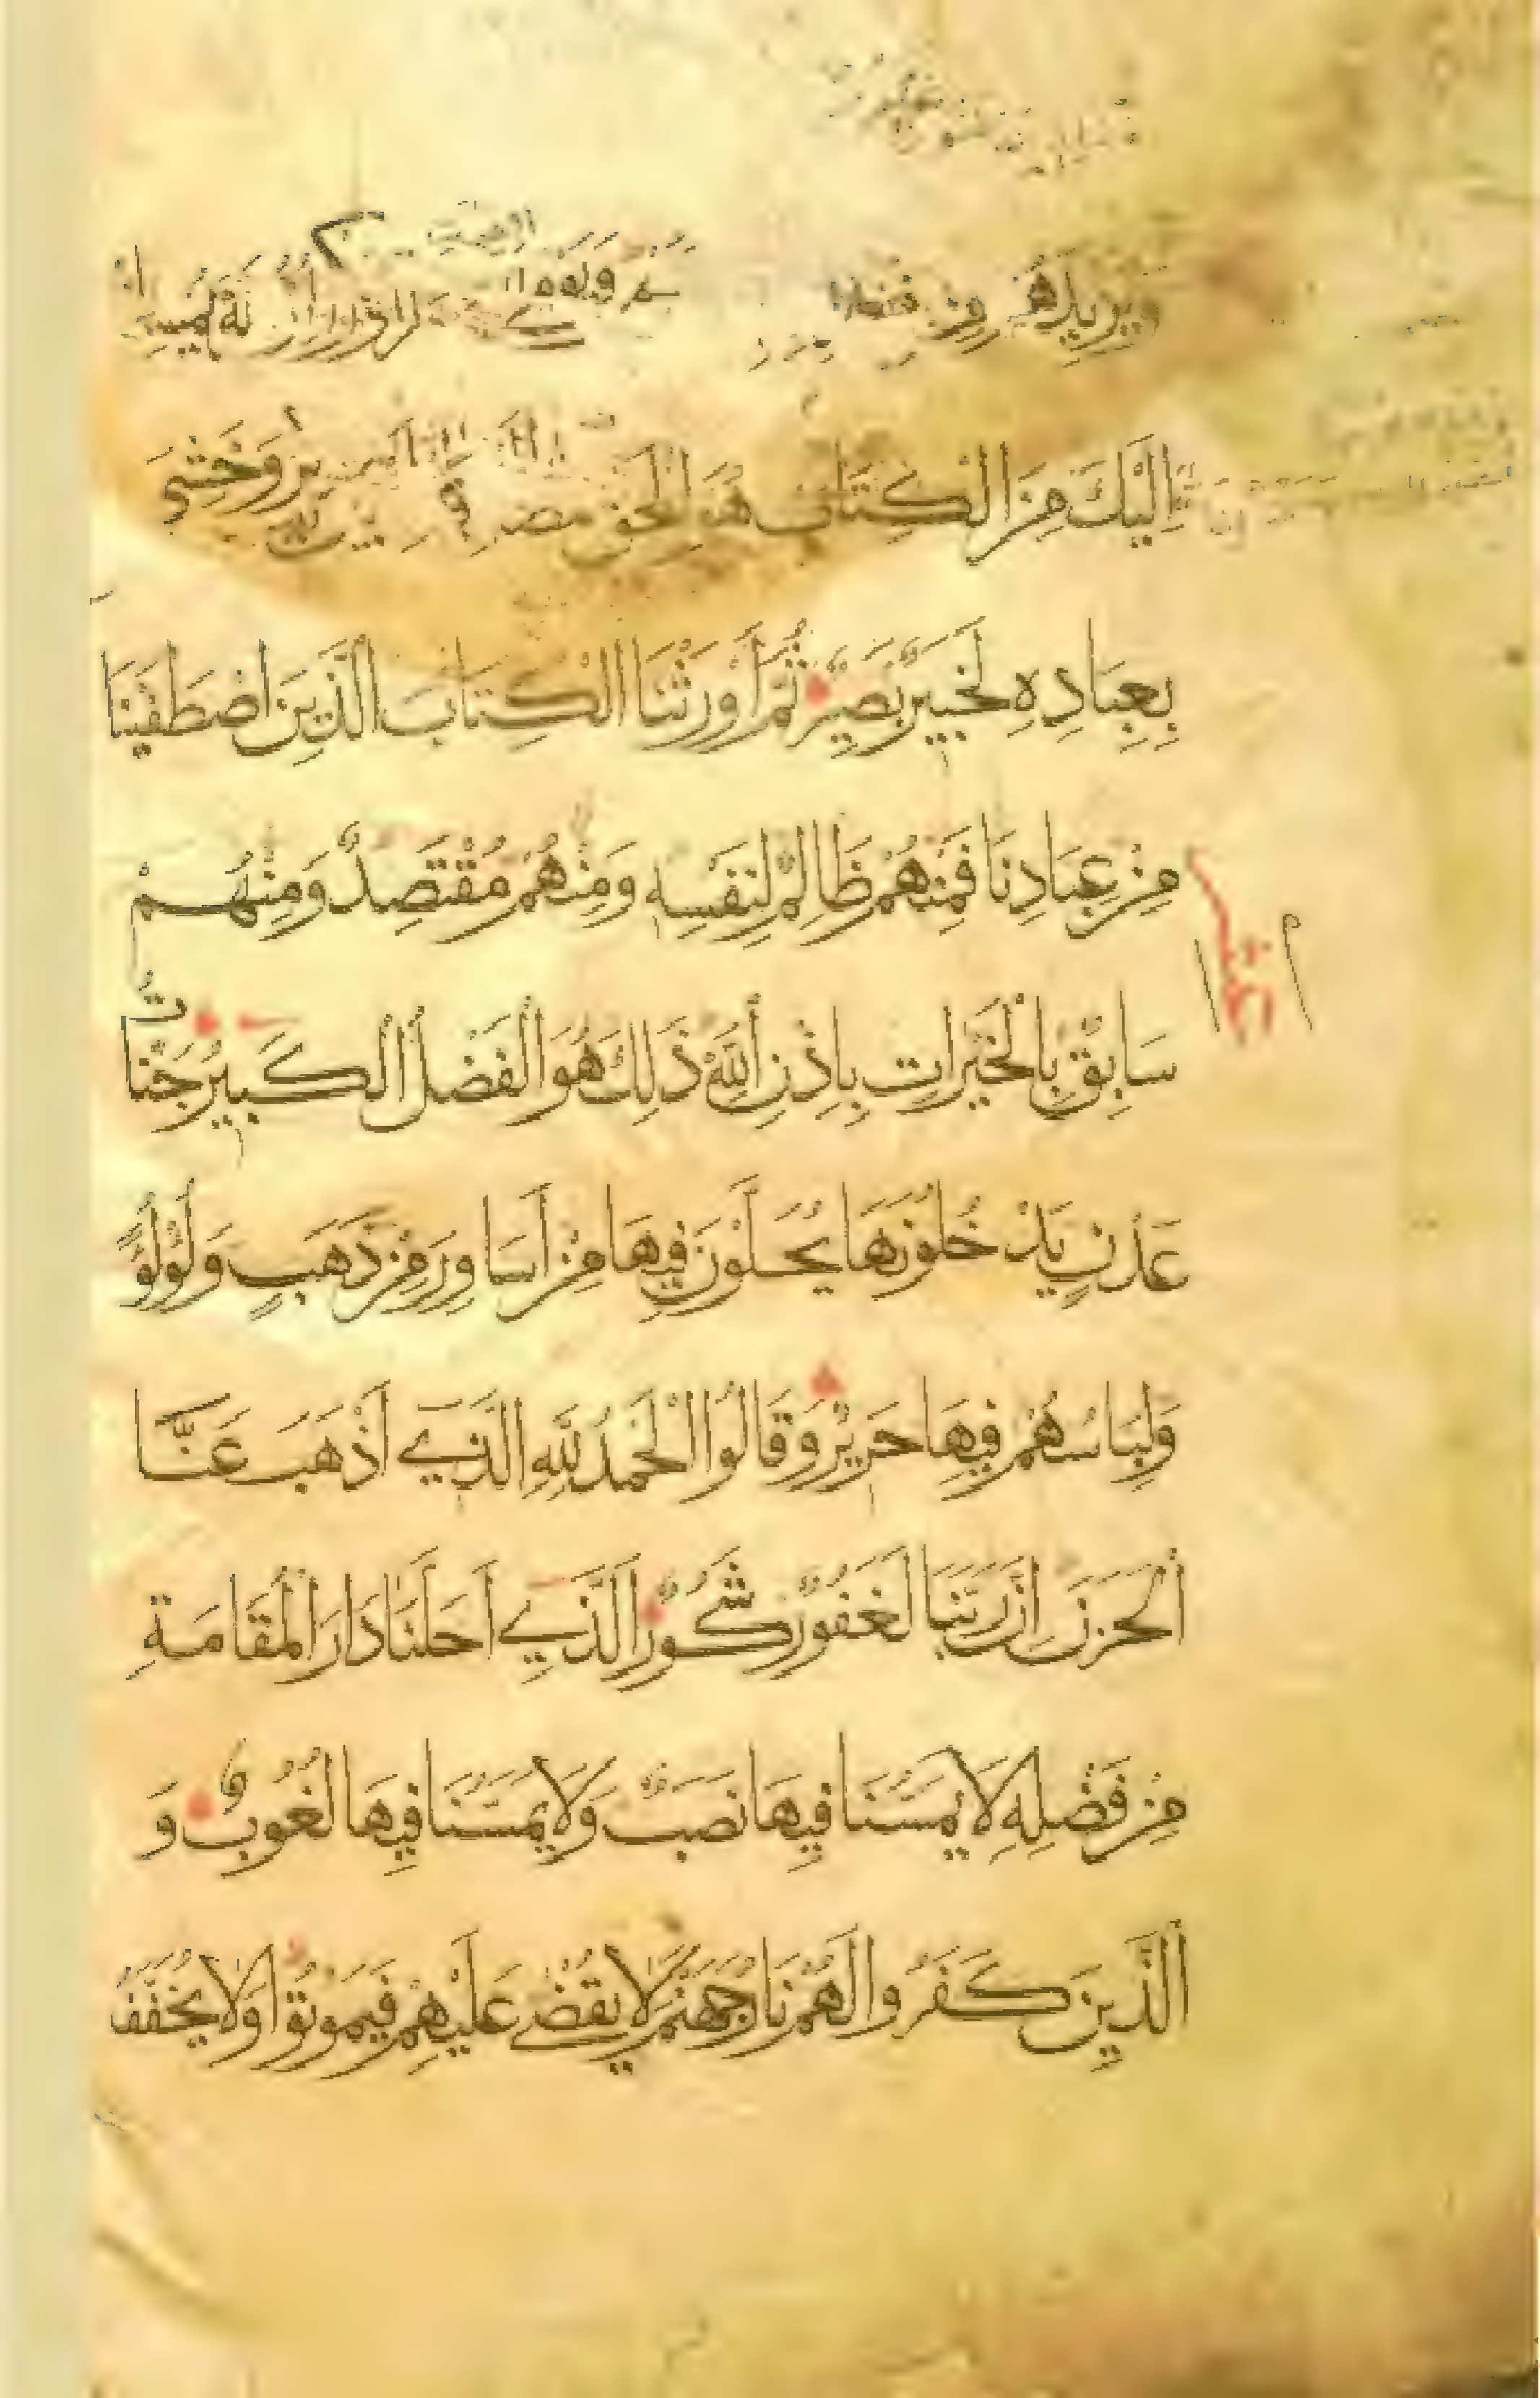 ويزيدهم من فضله
إِلَيْكَ مِنَ الْكِتَابِ هُوَ الْحَقُّ
بِعِبَادِهِ لَخَبِيرٌ بَصِيرٌ ثُمَّ أَوْرَثْنَا الْكِتَابَ الَّذِينَ اصْطَفَيْنَا
مِنْ عِبَادِنَا فَمِنْهُمْ ظَالِمٌ لِنَفْسِهِ وَمِنْهُمْ مُقْتَصِدٌ وَمِنْهُمْ
سَابِقٌ بِالْخَيْرَاتِ بِإِذْنِ اللَّهِ ذَلِكَ هُوَ الْفَضْلُ الْكَبِيرُ جَنَّاتُ
عَدْنٍ يَدْخُلُونَهَا يُحَلَّوْنَ فِيهَا مِنْ أَسَاوِرَ مِنْ ذَهَبٍ وَلُؤْلُؤًا
وَلِبَاسُهُمْ فِيهَا حَرِيرٌ وَقَالُوا الْحَمْدُ لِلَّهِ الَّذِي أَذْهَبَ عَنَّا
الْحَزَنَ إِنَّ رَبَّنَا لَغَفُورٌ شَكُورٌ الَّذِي أَحَلَّنَا دَارَ الْمُقَامَةِ
مِنْ فَضْلِهِ لَا يَمَسُّنَا فِيهَا نَصَبٌ وَلَا يَمَسُّنَا فِيهَا لُغُوبٌ وَ
الَّذِينَ كَفَرُوا لَهُمْ نَارُ جَهَنَّمَ لَا يُقْضَى عَلَيْهِمْ فَيَمُوتُوا وَلَا يُخَفَّفُ